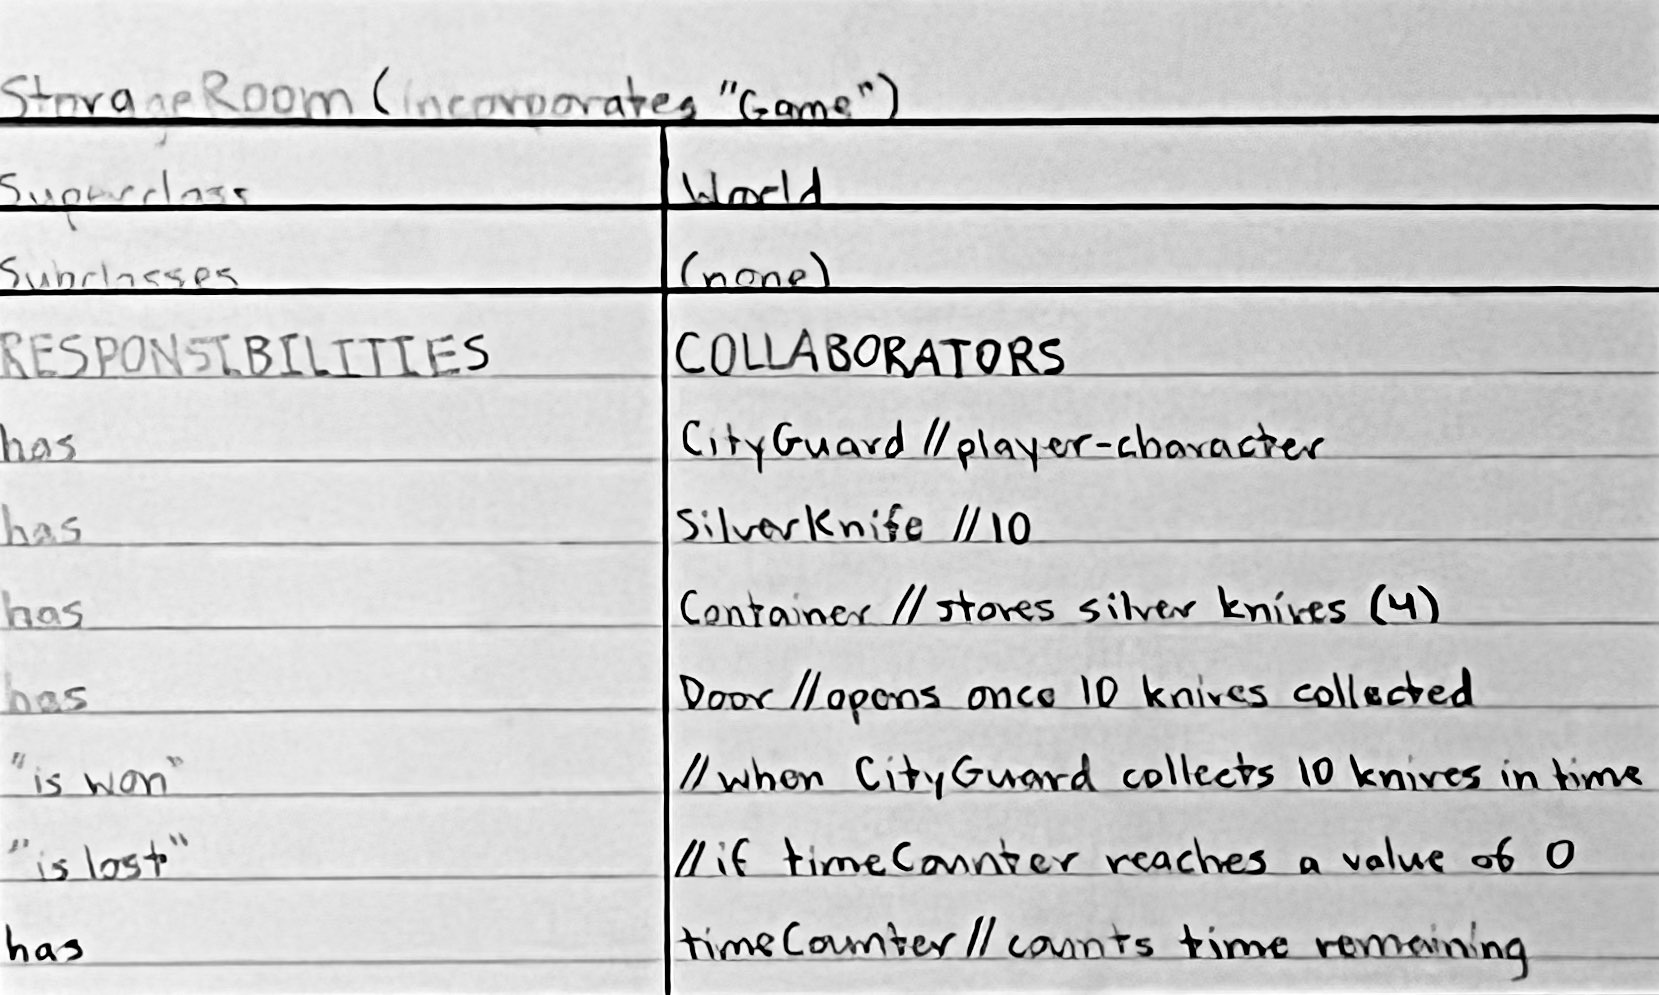 StorageRoom (incorporates "Game")
Superclass World
Subclasses (none)
RESPONSIBILITIES COLLABORATORS
has CityGuard //player-character
has SilverKnife //10
has Container //stores silver knives (4)
has Door //opens once 10 knives collected
"is won" //when CityGuard collects 10 knives in time
"is lost" //if timeCounter reaches a value of 0
has timeCounter//counts time remaining